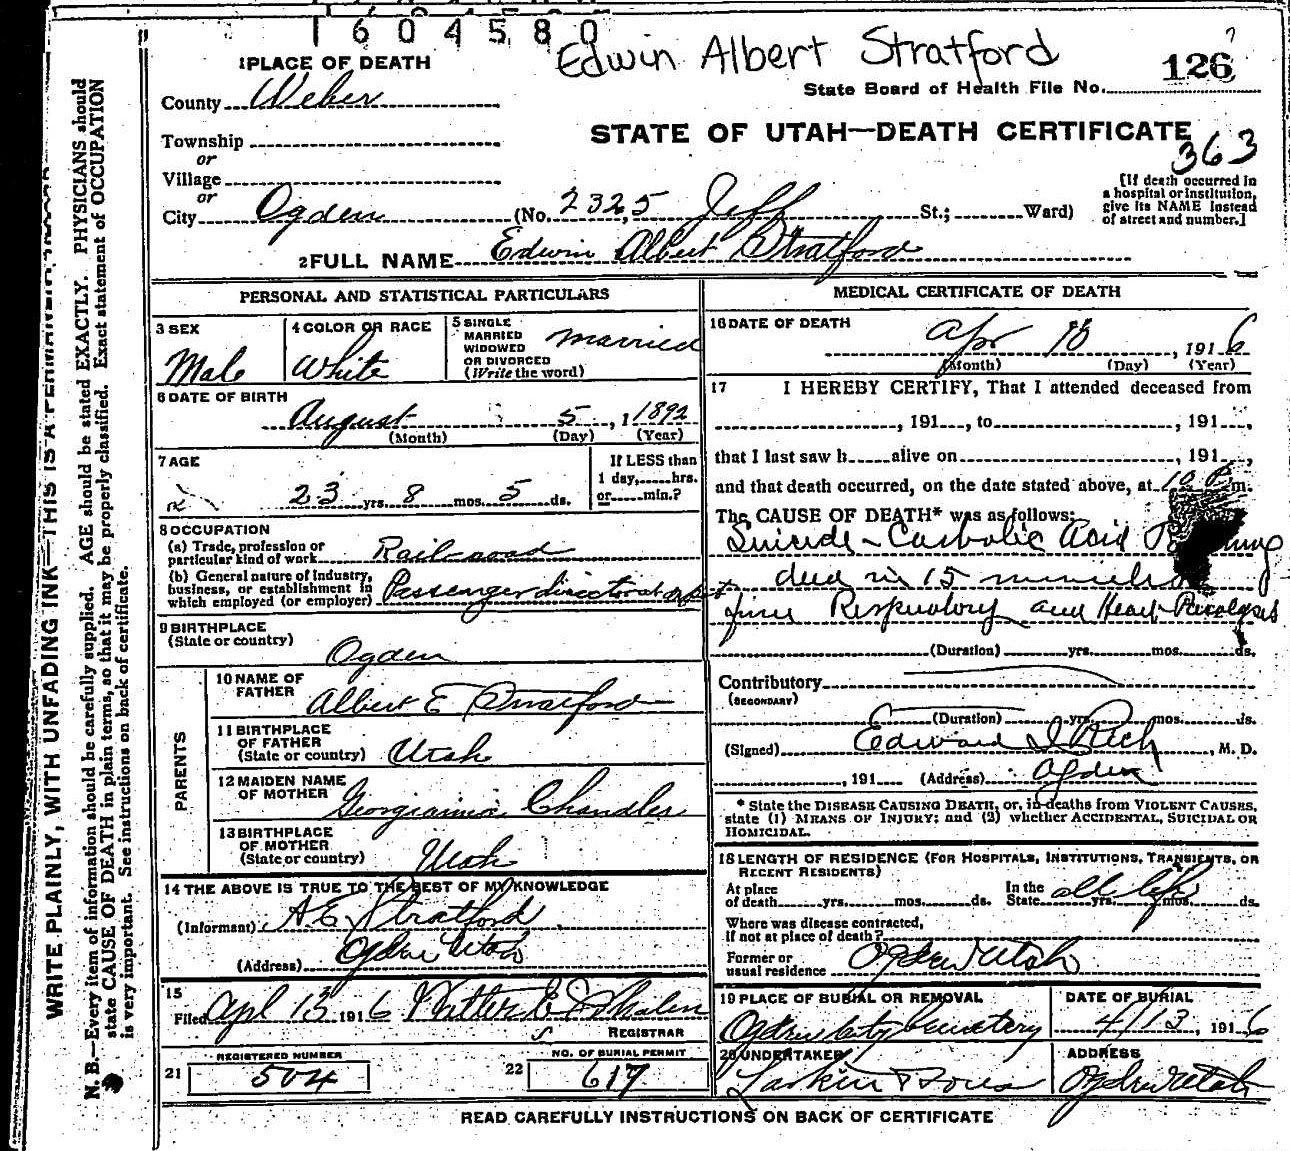 1604580
Edwin Albert Stratford
126
?
1 PLACE OF DEATH
State Board of Health File No.
County Weber
STATE OF UTAH—DEATH CERTIFICATE
363
Township
or
Village
or
City Ogden (No. 2325 Jeff St.; Ward)
[If death occurred in
a hospital or institution,
give its NAME instead
of street and number.]
2 FULL NAME Edwin Albert Stratford
PERSONAL AND STATISTICAL PARTICULARS
3 SEX
Male
4 COLOR OR RACE
White
5 SINGLE
MARRIED
WIDOWED
OR DIVORCED
(Write the word)
married
6 DATE OF BIRTH
August 5, 1 1892
(Month) (Day) (Year)
7 AGE
23 yrs. 8 mos. 5 ds.
If LESS than
1 day, hrs.
or min.?
8 OCCUPATION
(a) Trade, profession or
particular kind of work Railroad
(b) General nature of Industry,
business, or establishment in
which employed (or employer) Passenger
9 BIRTHPLACE
(State or country)
Ogden
PARENTS
10 NAME OF
FATHER
Albert E Stratford
11 BIRTHPLACE
OF FATHER
(State or country) Utah
12 MAIDEN NAME
OF MOTHER
Chandler
13 BIRTHPLACE
OF MOTHER
(State or country) Utah
14 THE ABOVE IS TRUE TO THE BEST OF MY KNOWLEDGE
(Informant) A E Stratford
(Address) Ogden Utah
15
Filed Apl 13 1916
REGISTRAR
REGISTERED NUMBER
21 504
NO. OF BURIAL PERMIT
22 617
MEDICAL CERTIFICATE OF DEATH
16 DATE OF DEATH
Apr 10, 1916
(Month) (Day) (Year)
17 I HEREBY CERTIFY, That I attended deceased from
, 191, to , 191,
that I last saw h alive on , 191,
and that death occurred, on the date stated above, at 10 P m.
The CAUSE OF DEATH* was as follows:
Suicide - Carbolic Acid
died in 15 minutes
from Respiratory and Heart Paralysis
(Duration) yrs. mos. ds.
Contributory
(SECONDARY)
(Duration) yrs. mos. ds.
(Signed) Edward I Rich, M. D.
, 191 (Address) Ogden
* State the DISEASE CAUSING DEATH, or, in deaths from VIOLENT CAUSES,
state (1) MEANS OF INJURY; and (2) whether ACCIDENTAL, SUICIDAL OR
HOMICIDAL.
18 LENGTH OF RESIDENCE (FOR HOSPITALS, INSTITUTIONS, TRANSIENTS, OR
RECENT RESIDENTS)
At place
of death yrs. mos. ds.
In the
State all life yrs. mos. ds.
Where was disease contracted,
If not at place of death?
Former or
usual residence Ogden Utah
19 PLACE OF BURIAL OR REMOVAL
Ogden City Cemetery
DATE OF BURIAL
4/13, 1916
20 UNDERTAKER
Larkin & Sons
ADDRESS
Ogden Utah
READ CAREFULLY INSTRUCTIONS ON BACK OF CERTIFICATE
WRITE PLAINLY, WITH UNFADING INK—THIS IS A PERMANENT
N. B.—Every item of information should be carefully supplied. AGE should be stated EXACTLY. PHYSICIANS should
state CAUSE OF DEATH in plain terms, so that it may be properly classified. Exact statement of OCCUPATION
is very important. See instructions on back of certificate.